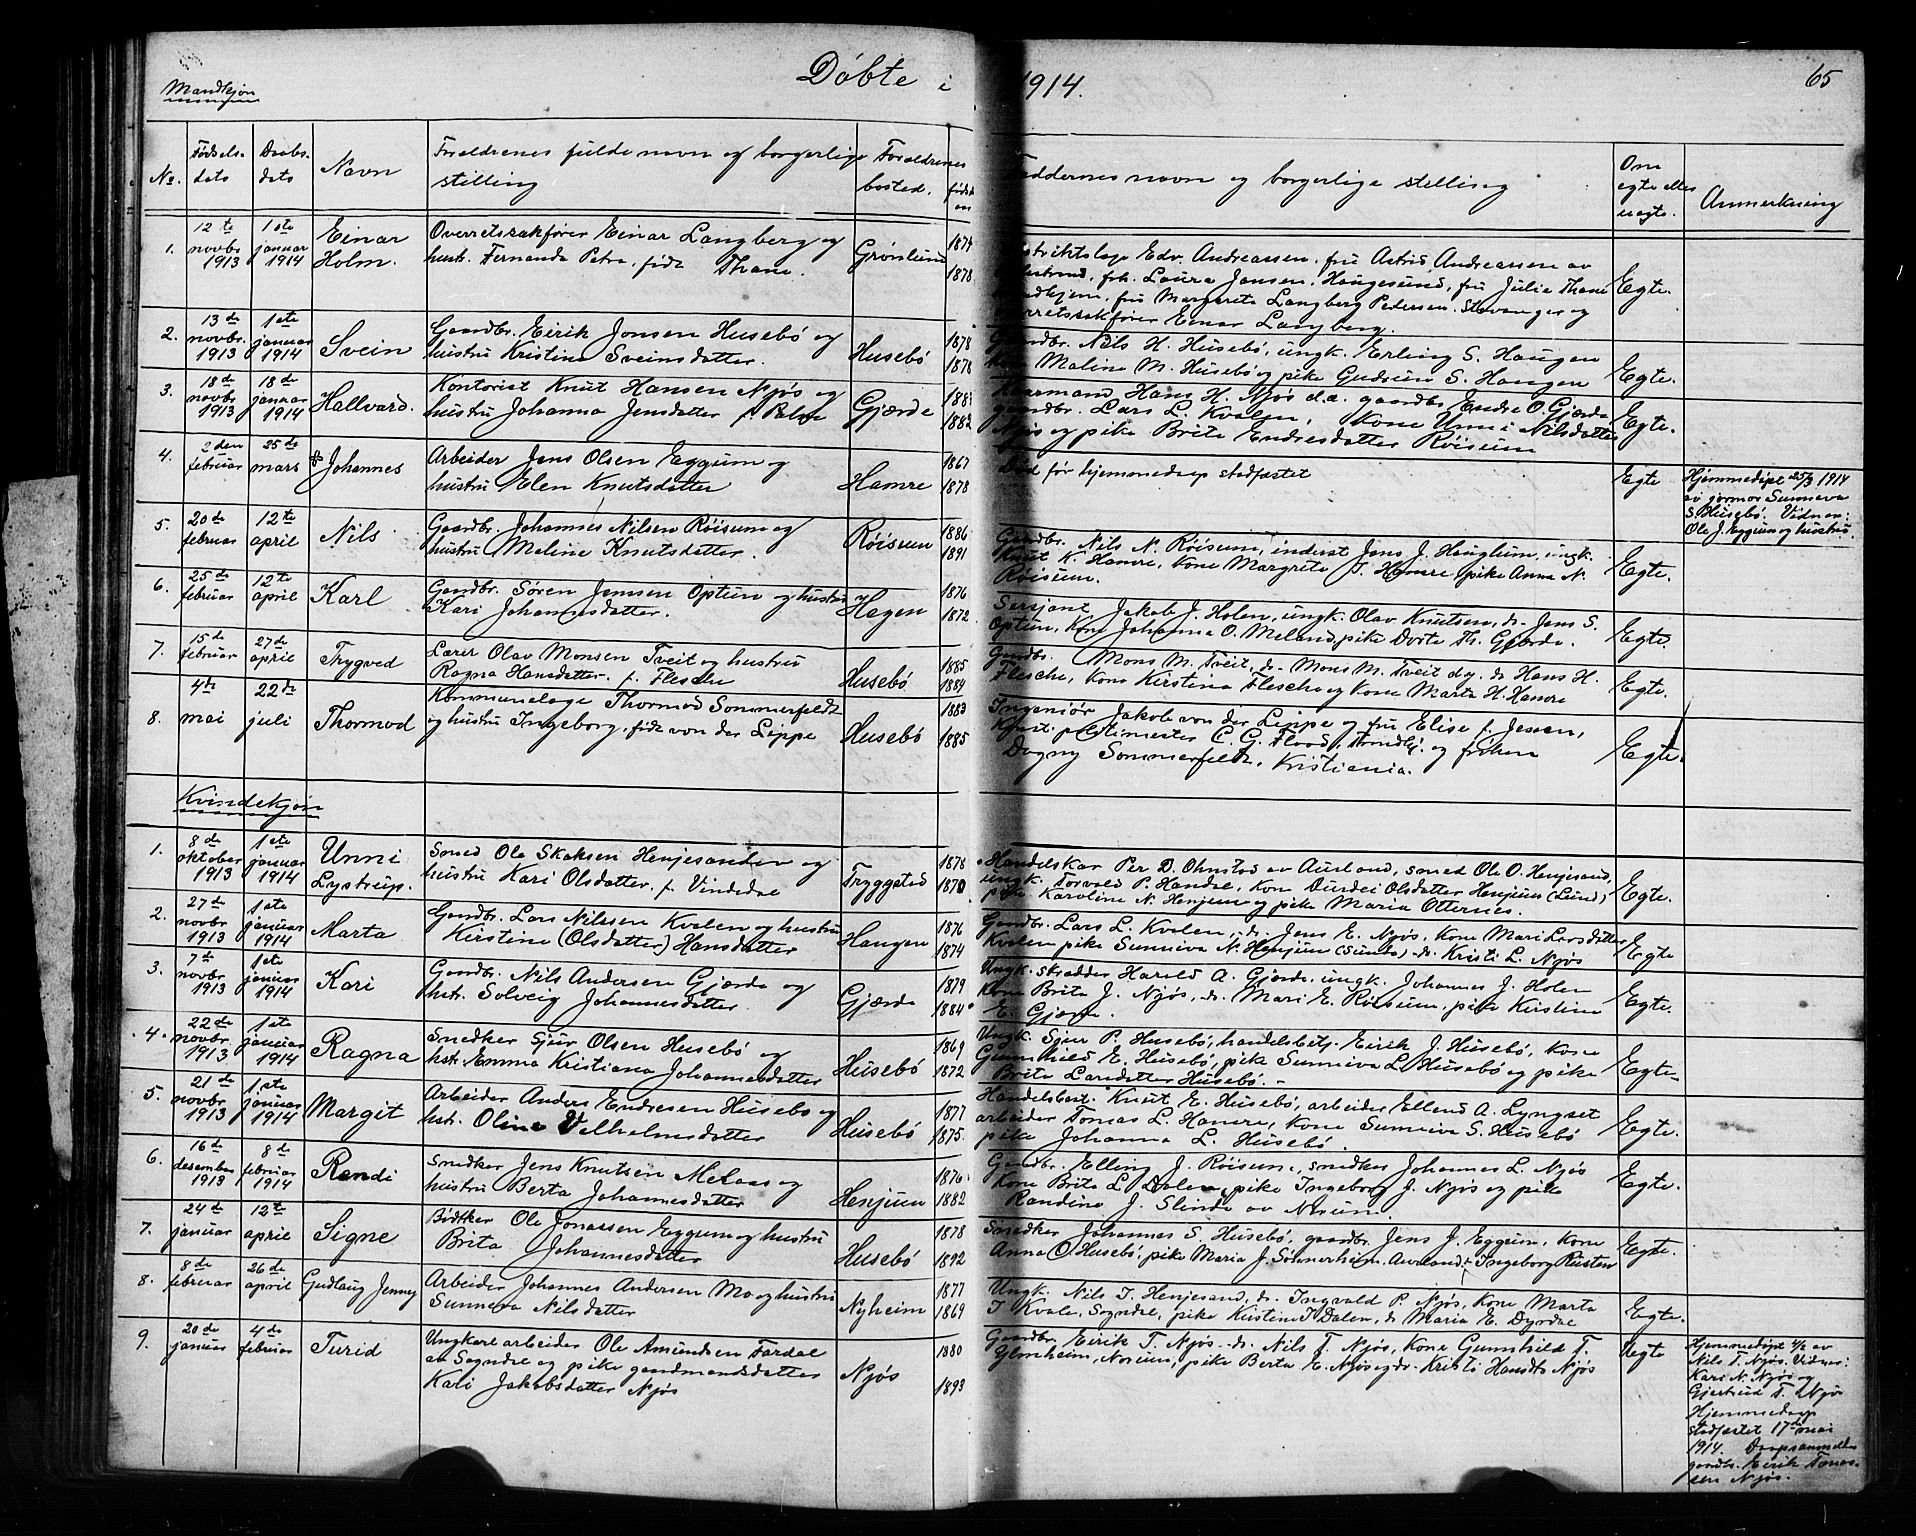 Døbte i 1914.
65
Mandkjøn
No. Fødsels- dato Daabs- dato Navn Foraldrenes fulde navn og borgerlige stilling Foraldrenes bosted. født on Faddernes navn og borgerlige stilling Om egte eller uegte. Anmerkning
1. 12te novbr 1913 1ste januar 1914 Einar Holm. Overretssakfører Einar Langberg og
hustr. Fernanda Petra, født Thane. Grønlund 1874 1878
Edv. Andreassen, fru Astrid Andreassen av
frk. Laura Jansen, Haugesund, fru Julie Thane
fru Margarete Langberg Pedersen Stavanger og
Einar Langberg. Egte.
2. 13de novbr. 1913 1ste januar 1914 Svein Gaardbr. Eirik Jonsen Husebø og
hustru Kristine Sveinsdatter. Husebø 1878 1878
Gaardbr. Nils H. Husebø, ungk. Erling S. Haugen
Maline M. Husebø og pike Gudrun S. Haugen Egte.
3. 18de novbr 1913 18de januar 1914 Hallvard. Kontorist Knut Hansen Njøs og
hustru Johanna Jensdatter Gjærde 1882
Hans H. Njøs d.æ. gaardbr. Endre O. Gjærde
gaardbr. Lars L. Kvalen, Kone Unni Nilsdatter
Njøs og pike Brite Endresdatter Røisum Egte.
4. 2den februar 25de mars Johannes Arbeider Jens Olsen Eggum og
hustru Elen Knutsdatter Hamre 1867 1878
Død før hjemmedaap stadfæstet Egte
Hjemmedøpt 25/3 1914
av Sunneva
S. Husebø. Vidner:
Ole J. Eggum og hustru.
5. 20de februar 12te april Nils Gaardbr. Johannes Nilsen Røisum og
hustru Maline Knutsdatter. Røisum 1886 1891
Gardbr. Nils N. Røisum, inderst Jens J. Haughum, ungk.
Knut K. Hamre, Kone Margrete J. Hamre, pike Anna N.
Røisum. Egte.
6. 25de februar 12te april Karl Gardbr. Søren Jensen Optun og hustru
Kari Johannesdatter. Hagen 1876 1872
Sersjant Jakob J. Holen, ungk. Olav Knutsen, do. Jens S.
Optun, Kone Johanna O. Meland, pike Dorte Th. Gjærde. Egte.
7. 15de februar 27de april Trygved Lærer Olav Monsen Tveit og hustru
Ragna Hansdatter f. Flesche Husebø 1885 1884
Gardbr. Mons M. Tveit, do. Mons M. Tveit d.y. do Hans H.
Flesche, Kone Kirstina Flesche og Kone Marta H. Hamre Egte.
8. 4de mai 22de juli Thormod Kommunelæge Thormod Sommerfeldt
og hustru Ingeborg, født von der Lippe Husebø 1883 1885
Ingeniør Jakob von der Lippe og fru Elise f. Jessen,
Konst. politimester C. G. Flood, Trondhj. og frøken
Dagny Sommerfeldt, Kristiania. Egte.
Kvindekjøn
1. 8de oktober 1913 1ste januar 1914 Unni Lystrup. Smed Ole Skaksen Henjesanden og
hustru Kari Olsdatter f. Vindedal Tryggstad 1878
Handelskar Per D. Ohnstad av Aurland, smed Ole O. Henjesand,
ungk. Torvald P. Handal, Kone Olsdatter Henjum (Lund)
pike Karoline N. Henjum og pike Maria Otternes. Egte.
2. 27de novbr 1913 1ste januar 1914 Marta Gardbr. Lars Nilssen Kvalen og hustru
Kirstine (Olsdatter) Hansdatter Haugen 1876 1874
Gardbr. Lars L. Kvalen, do. Jens E. Njøs, Kone Mari Larsdatter
Kvalen pike Sunneva N. Henjum do. Kristi L. Njøs Egte
3. 7de novbr 1913 1ste januar 1914 Kari Gardbr. Nils Andersen Gjærde og
hstr. Solveig Johannesdatter. Gjærde 1879 1884
Ungk. skrædder Harald A. Gjærde, ungk. Johannes J. Holen
Kone Brite J. Njøs, do. Mari E. Røisum, pike Kirstine
E. Gjærde. Egte.
4. 22de novbr 1913 1ste januar 1914 Ragna Snedker Sjur Olsen Husebø og
hstr. Emma Kristiana Johannesdatter Husebø 1869 1872
Ungk. Sjur P. Husebø, handelsbetj. Eirik J. Husebø, Kone
Gunnhild E. Husebø, pike Sunneva L. Husebø og pike
Brite Larsdatter Husebø. Egte
5. 21de novbr 1913 1ste januar 1914 Margit Arbeider Anders Endresen Husebø og
hstr. Oline Velhelmsdatter Husebø 1877 1875.
Handelsbest. Knut E. Husebø, arbeider Ellend A. Lyngset
arbeider Tomas L. Hamre, Kone Sunneva S. Husebø
pike Johanna L. Husebø. Egte.
6. 16de desember 1913 8de februar 1914 Randi Snedker Jens Knutsen Melaas og
hustru Berta Johannesdatter Henjum 1876 1882
Gardbr. Elling J. Røisum, snedker Johannes L. Njøs
Kone Brite L. Dalen, pike Ingeborg J. Njøs og pike
Randine J. Slinde av Norum. Egte.
7. 24de januar 12te april Signe Bødtker Ole Jonassen Eggum og hustru
Brita Johannesdatter Husebø 1878 1872
Snedker Johannes S. Husebø, gaardbr. Jens J. Eggum, Kone
Anna O. Husebø, pike Maria J. Sommerheim, Aurland, Ingeborg Rusten Egte.
8. 8de februar 26de april Gudlaug Jenny Arbeider Johannes Andersen Mo og hustru
Sunneva Nilsdatter Nyheim 1877 1869
Ungk. Nils I. Henjesand, do. Ingvald P. Njøs, Kone Marta
I Kvale, Sogndal, pike Kirstine I Dalen, do Maria E. Dyrdal Egte.
9. 20de januar 4de februar Turid Ungkarl arbeider Ole Amundsen Fardal
av Sogndal og pike gaardmandsdatter
Kari Jakobsdatter Njøs Njøs 1880 1893
Gaardbr. Eirik T. Njøs. do. Nils T. Njøs, Kone Gunnhild T.
Norum, pike Berta E. Njøs og do. Kristi Hansdtr Njøs
Hjemmedøpt 4/2 av
Nils T. Njøs. Vidner:
Kari N. Njøs og
Gjertrud T. Njøs
Hjemmedaap
stadfæstet 17de mai
1914.
gaardbr. Eirik Tomassen Njøs.